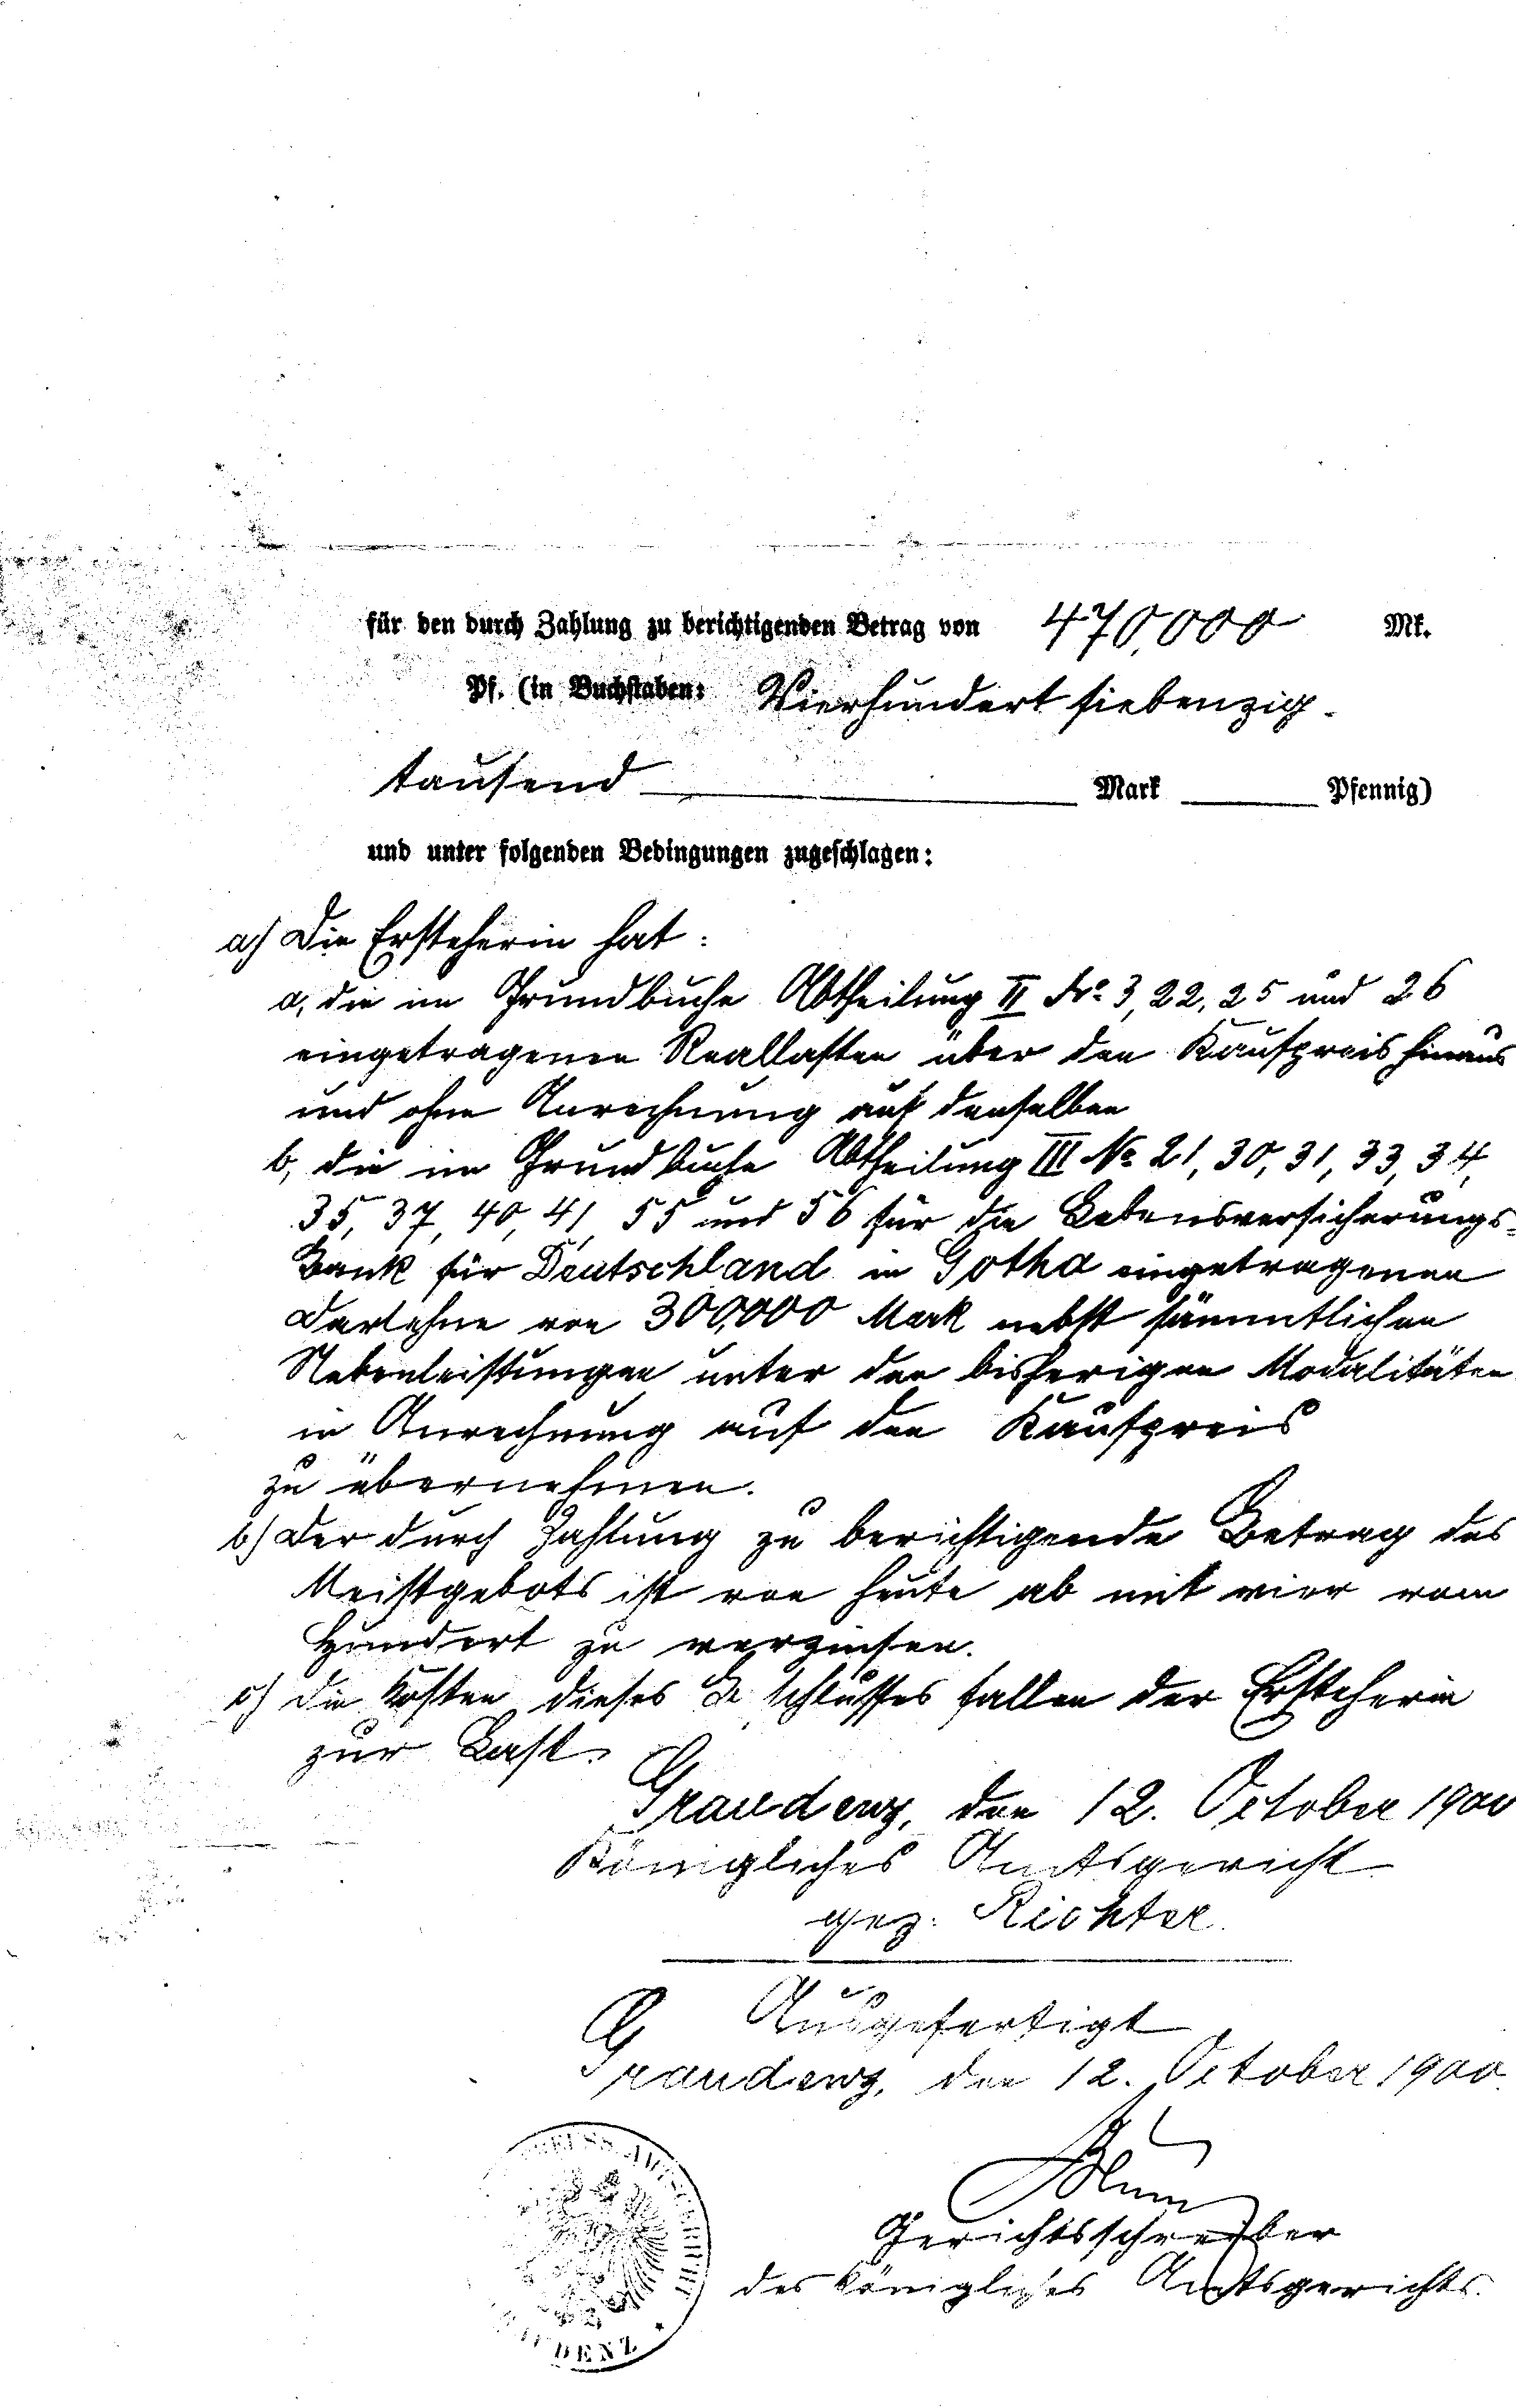 für den durch Zahlung zu berichtigenden Betrag von 470,000 Mk.
Pf. (in Buchstaben: Vierhundert siebenzig-
tausend Mark Pfennig)
und unter folgenden Bedingungen zugeschlagen:
a) Die Ersteherin hat:
a, die im Grundbuche Abtheilung II No 3, 22, 25 und 26
eingetragenen Reallasten über den Kaufpreis hinaus
und ohne Anrechnung auf denselben
b, die im Grundbuche Abtheilung III No 21, 30, 31, 33, 34,
35, 37, 40, 41, 55 und 56 für die Lebensversicherungs-
Bank für Deutschland in Gotha eingetragenen
Darlehne von 300,000 Mark nebst sämmtlichen
Nebenleistungen unter den bisherigen Modalitäten
in Anrechnung auf den Kaufpreis
zu übernehmen.
b) Der durch Zahlung zu berichtigende Betrag des
Meistgebots ist von heute ab mit vier vom
Hundert zu verzinsen.
c) Die Kosten dieses Beschlusses fallen der Ersteherin
zur Last.
Graudenz, den 12. October 1900
Königliches Amtsgericht
gez. Richter.
Ausgefertigt
Graudenz, den 12. October 1900.
Gerichtsschreiber
des Königliches Amtsgerichts.
PREUSS. AMTSGERICHT
DENZ *